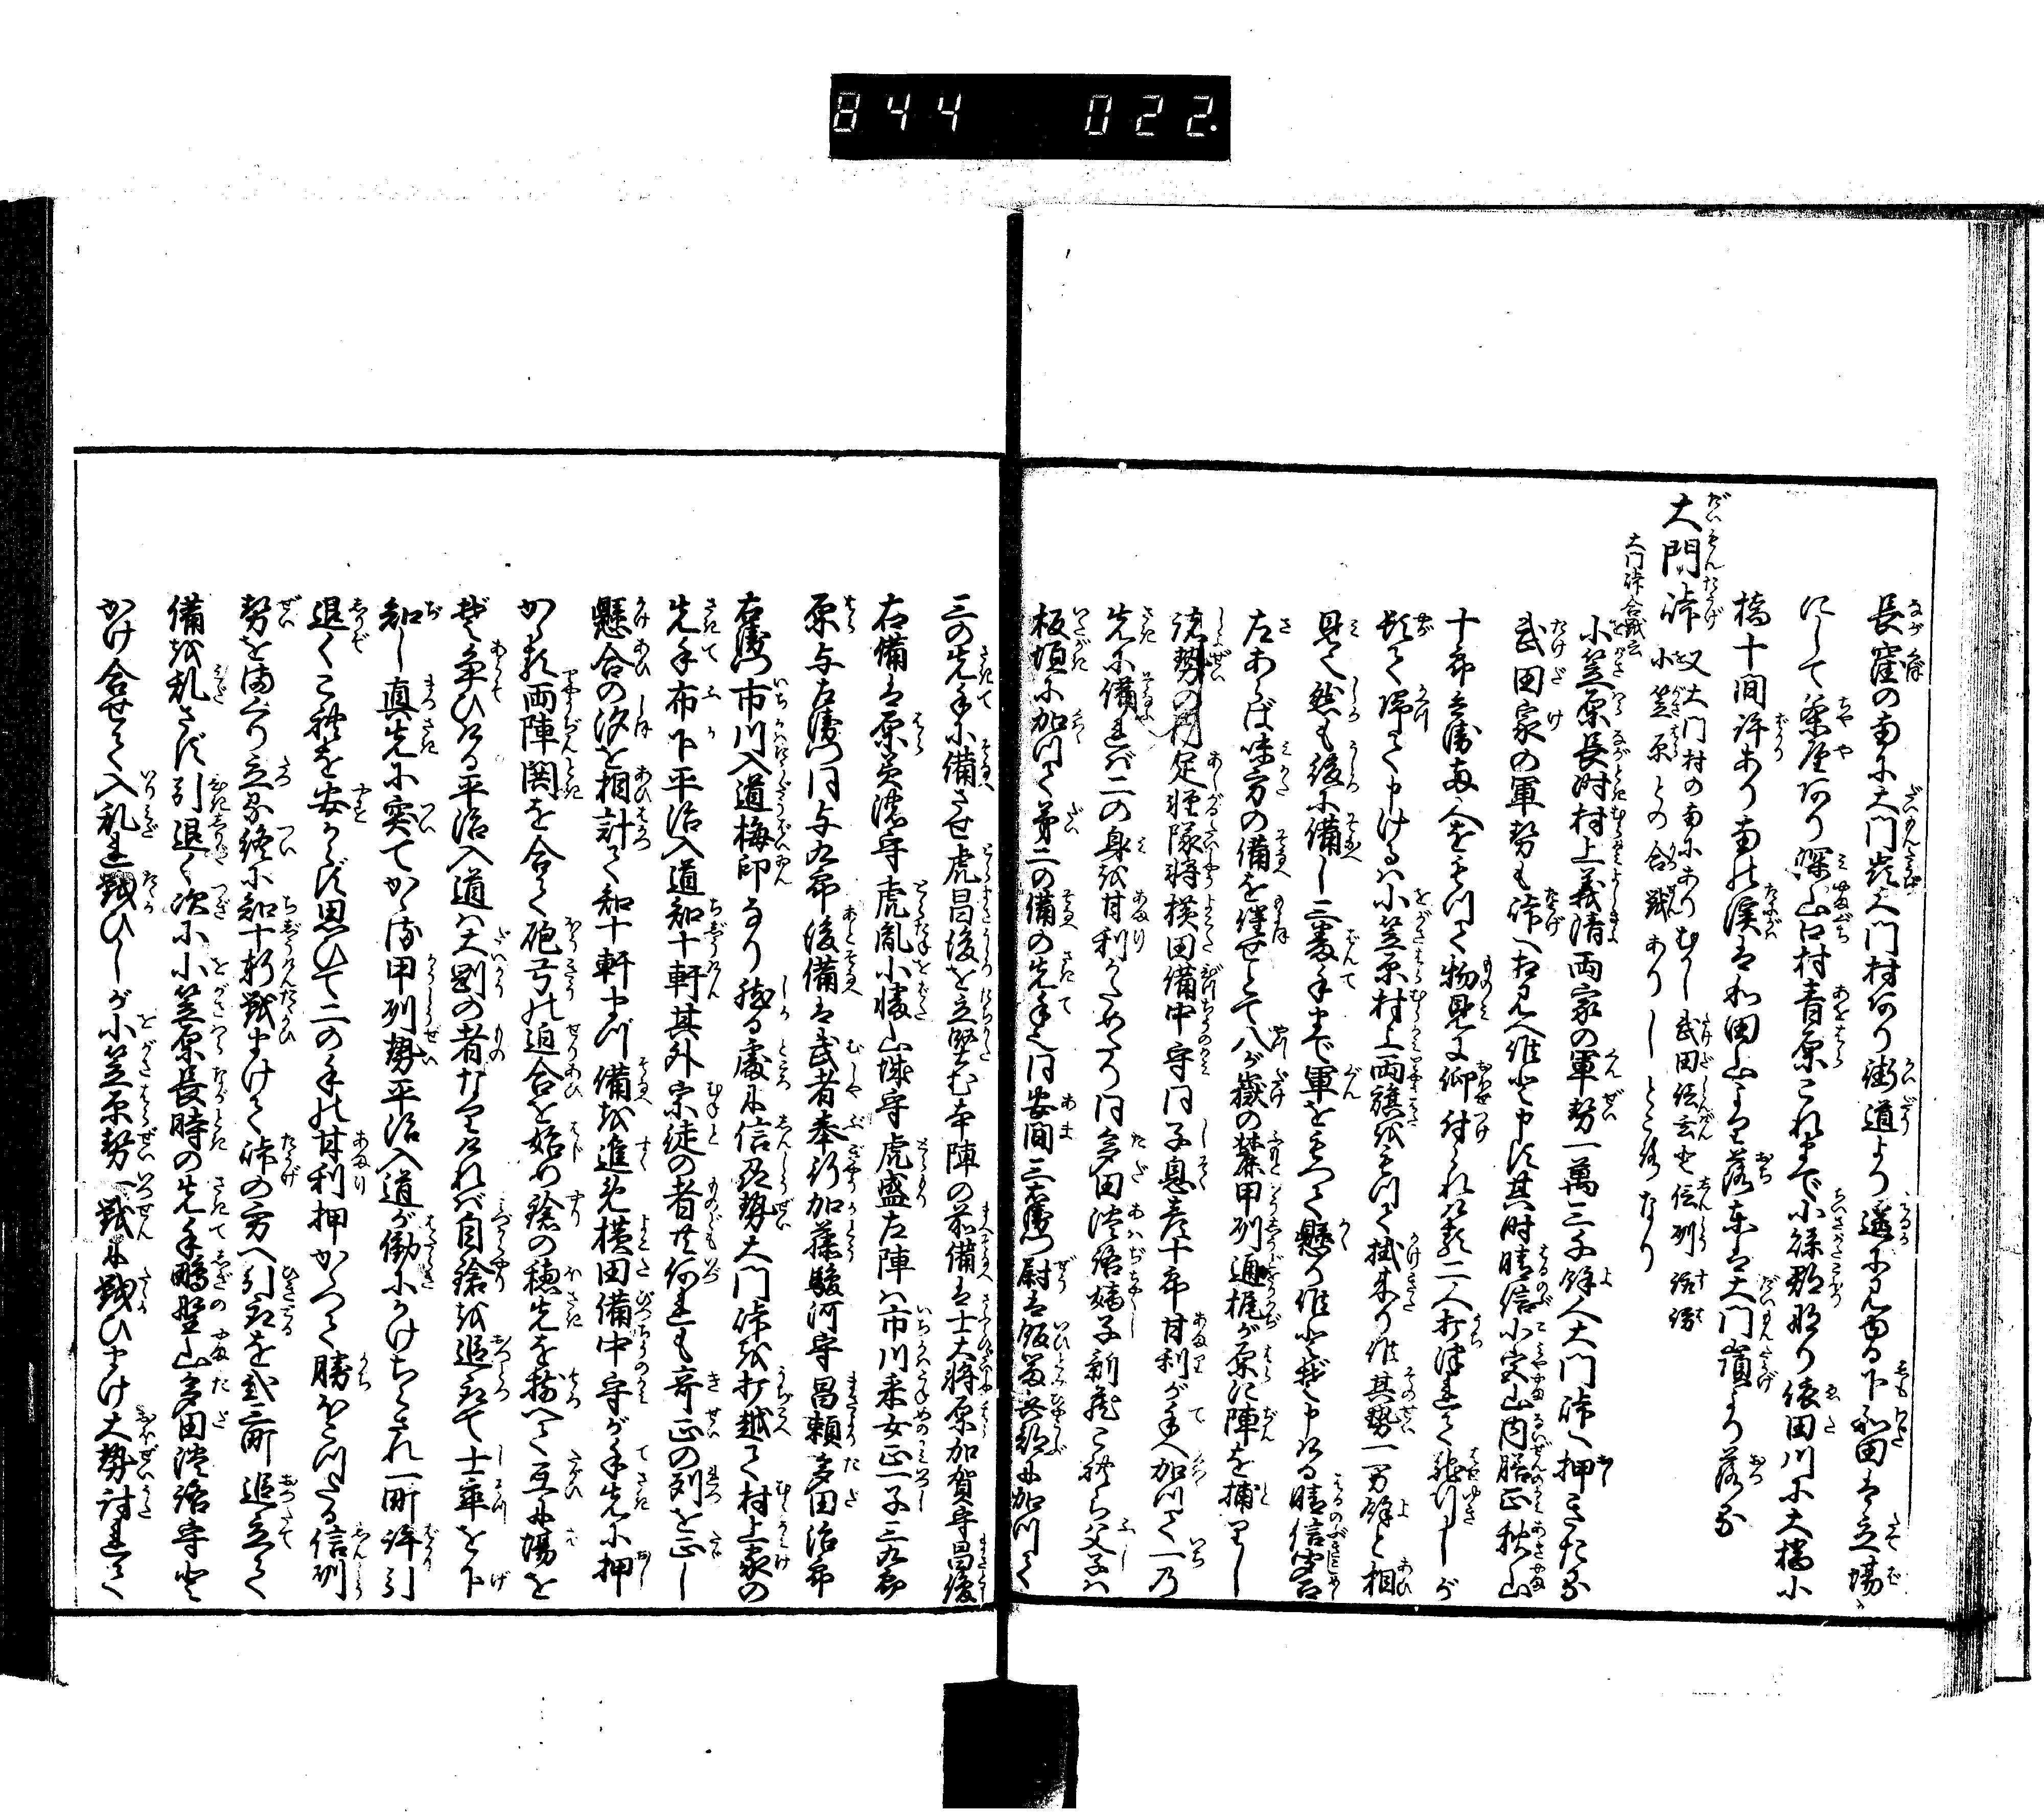 844 022
長窪の南に大門嶺大門村あり街道より遥に見ゆる下和田は立場
にして茶屋あり深山口村青原これまで小縣郡なり依田川に大橋小
橋十間許あり南の溪は和田山より落東は大門嶺より落る
大門峠 又大門村の南にありむかし武田信玄と信州諏訪
小笠原との合戦ありしところなり
大門峠合戦云
小笠原長時村上義清両家の軍勢一萬三千餘人大門峠へ押きたる
武田家の軍勢も峠へ相見へ候と申す其時晴信小宮山内膳正秋山
十郎兵衛両人をもつて物見に仰付られける二人打連て馳行しが
頓て帰て申けるハ小笠原村上両旗をもつて拭来り候其勢一万餘と相
見て然も後に備し二番手まで軍をもつて懸り候と申ける晴信宣
左あらば味方の備を繰せとて八が嶽の麓甲州通梶が原に陣を捕りし
諸勢の内足軽隊将横田備中守同子息彦十郎甘利が手へ加つて一の
先に備ればニの身を甘利うためつゝ同多田淡路嫡子新蔵これら父子ハ
板垣に加つて第二の備の先手也同安間三右衛門尉は飯富兵部に加つて
三の先手に備させ虎昌後を立堅む本陣の前備は士大将原加賀守昌俊
右備は原美濃守虎胤小幡山城守虎盛左陣ハ市川釆女正一子三九郎
原与左衛門同与九郎後備は武者奉行加藤駿河守昌頼多田治郎
右衛門市川入道梅印なり然る處に信州勢大門峠を打越て村上家の
先手布下平治入道知十軒其外宗徒の者共何れも奇正の列を正し
懸合の汐を相計て知十軒まづ備を進め横田備中守が手先に押
かゝる両陣鬨を合て砲弓の迫合を始め鎗の穂先を揃へて互に場を
ぞ争ひける平治入道ハ大剛の者なりければ自鎗を追取て士卒を下
知し真先に突てかゝる甲州勢平治入道が働にかけちらされ一町許引
退くこれを安からず思ひて二の手の甘利押かゝつて勝ほこつたる信州
勢を漸々り立る終に知十軒戦まけて峠の方へ引取を弐三町追立て
備を乱さず引退く次に小笠原長時の先手鴫野山多田淡路守と
かけ合せて入乱れ戦ひしが小笠原勢一戦に戦ひまけ大勢討れて